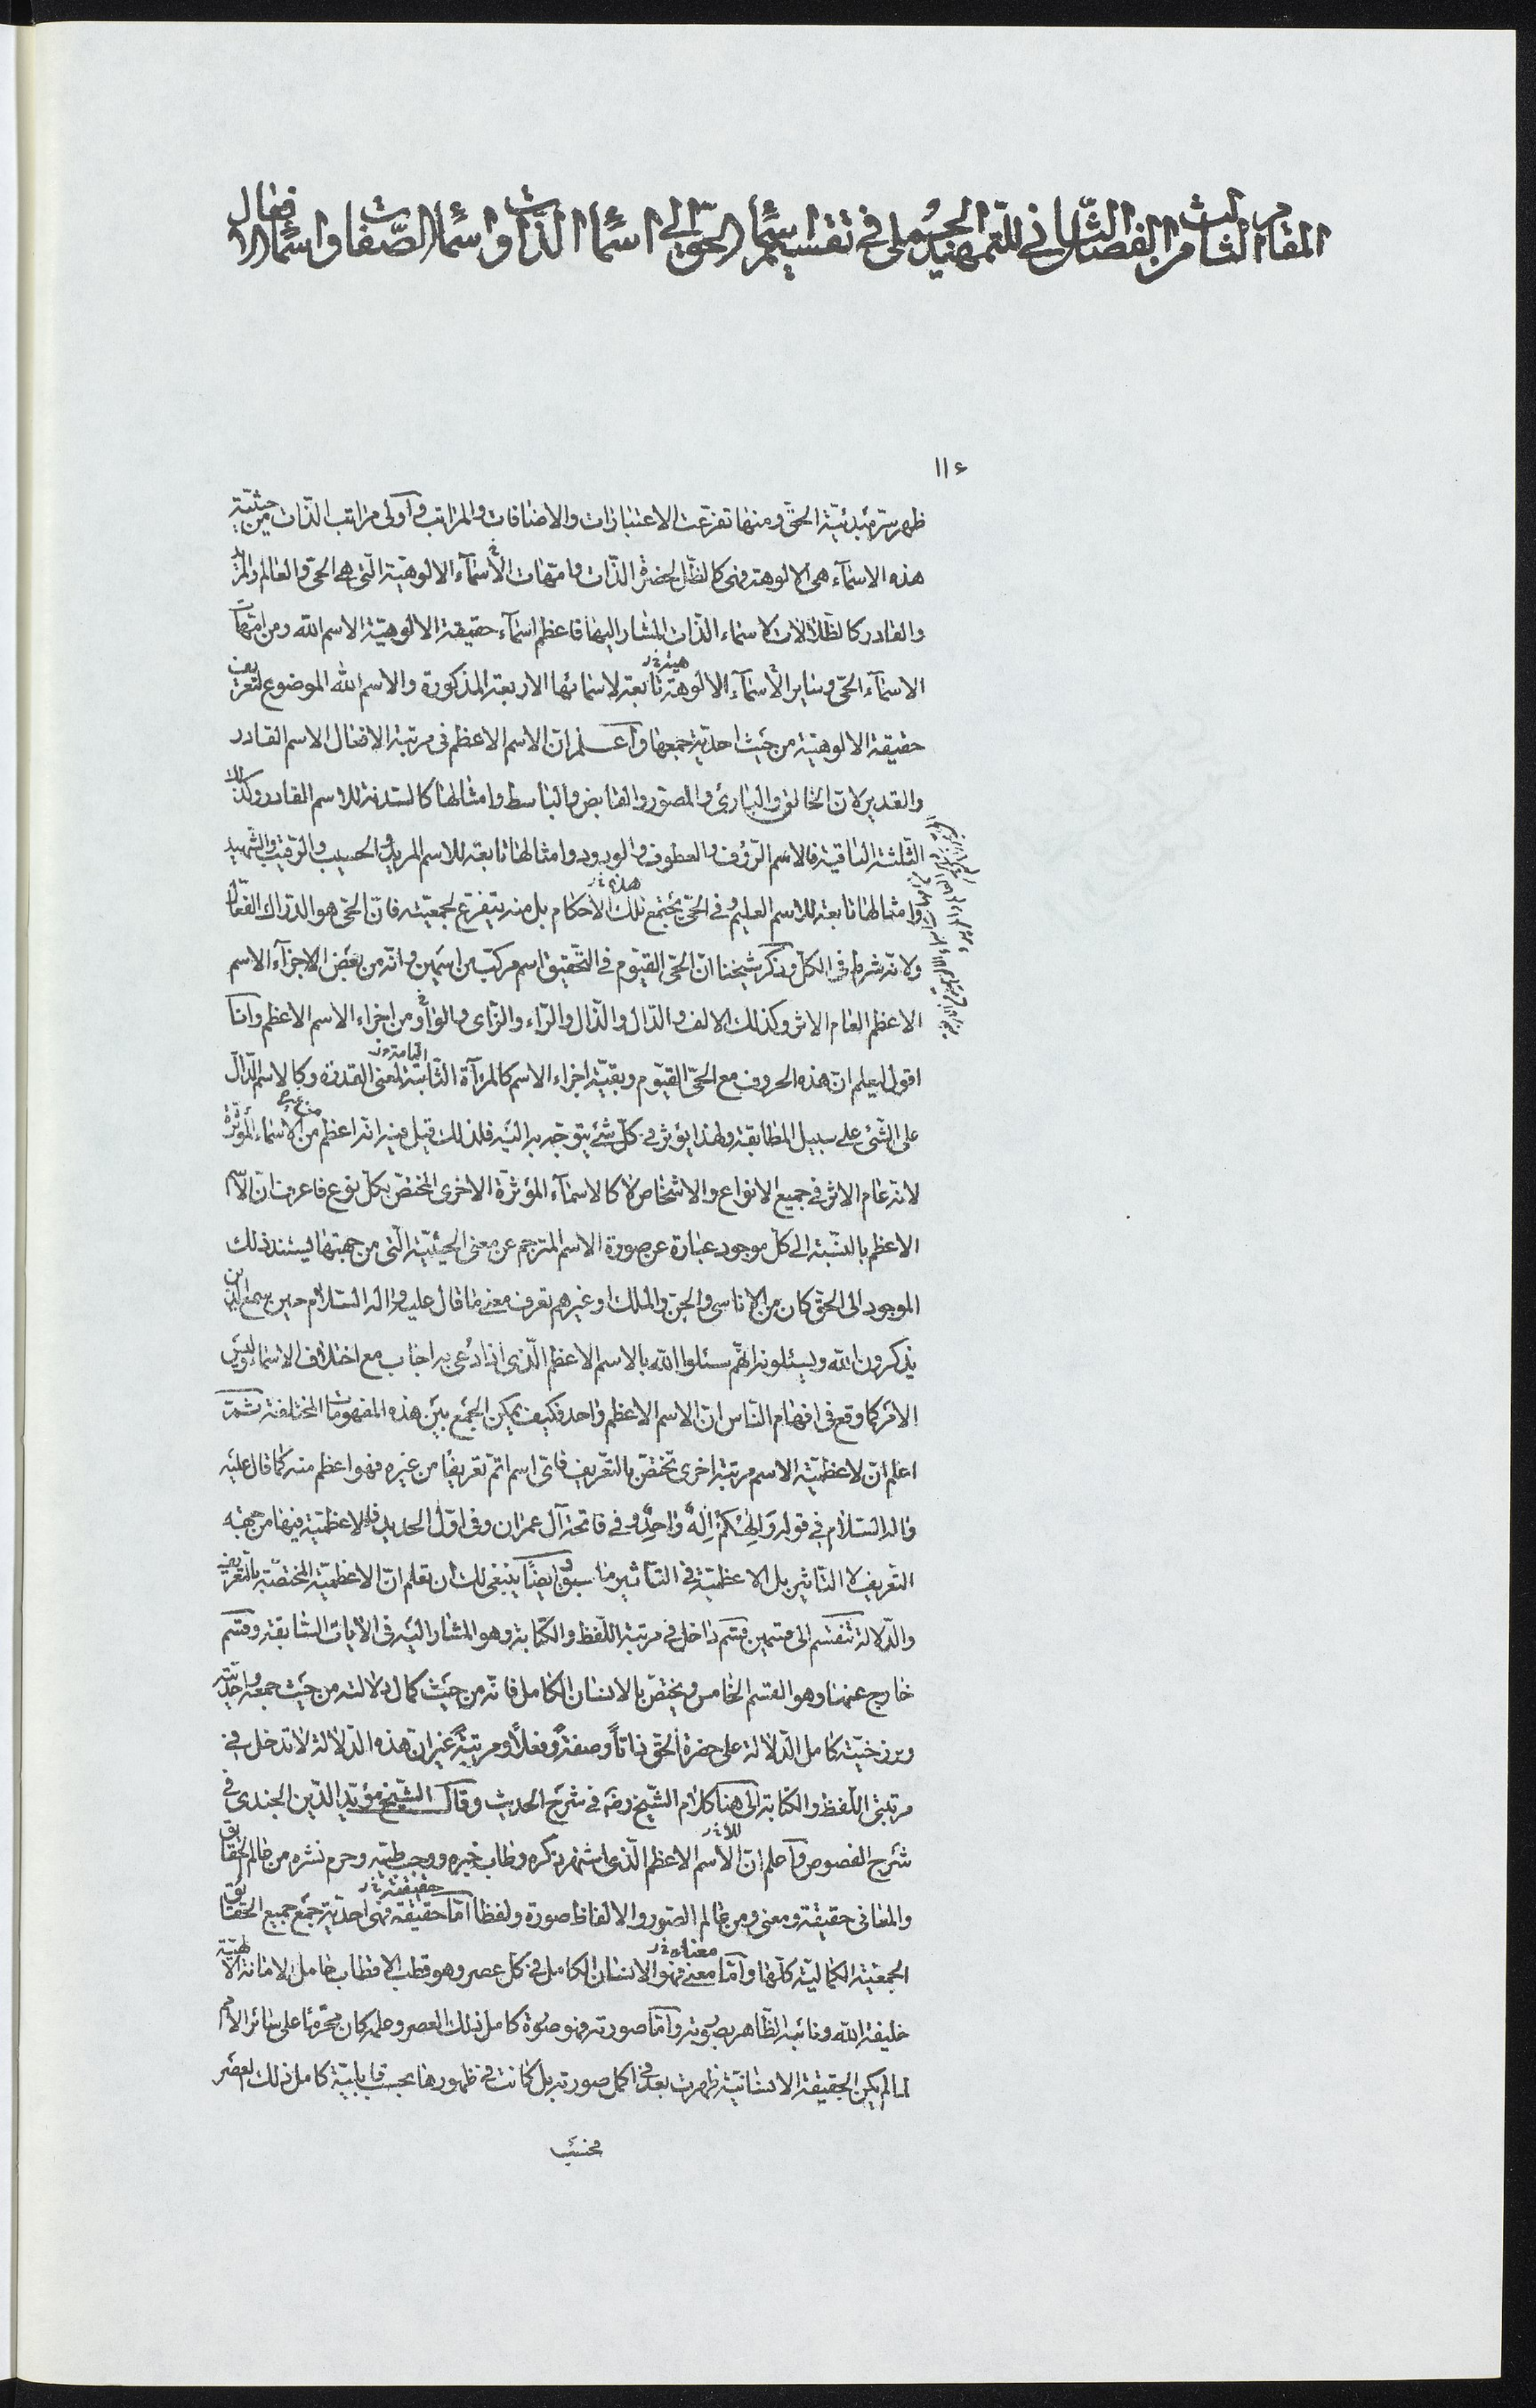 المقام الثالث من الفصل الثاني للتمهيد الجملي في تقسيم اسماء الحق الى اسماء الذات واسماء الصفات واسماء الافعال
١١٤
ظهر سر مبدئيّة الحقّ ومنها تفرّعت الاعتبارات والاضافات والمراتب وأولى مراتب الذّات من حيثيّة
هذه الاسمآء هي الالوهة فهي كالظّل لحضرة الذّات وامّهات الأسمآء الالوهيّة الّتي هي الحيّ والعالم والمريد
والقادر كالظّلالات لاسماء الذّات المشار اليها فاعظم اسمآء حقيقة الالوهيّة الاسم الله ومن امّهات
الاسمآء الحيّ وساير الأسمآء الالوهة تابعة لاسمائها الاربعة المذكورة والاسم الله الموضوع لتعريف
حقيقة الالوهيّة من حيث احديّة جمعها وأعلم انّ الاسم الاعظم في مرتبة الافعال الاسم القادر
والقدير لانّ الخالق والبارئ والمصوّر والقابض والباسط وامثالها كالسّدنة للاسم القادر وكذلك
الثّلثة الباقية فالاسم الرّؤف والعطوف والودود وامثالها تابعة للاسم المريد والحسيب والرّقيب والشّهيد
وامثالها تابعة للاسم العليم وفي الحيّ يجتمع تلك الاحكام بل منه يتفرّع لجمعيّته فانّ الحيّ هو الدّراك الفعّال
ولانّه شرط في الكلّ وذكر شيخنا انّ الحيّ القيّوم في التّحقيق اسم مركّب من اسمين وانّه من بعض الاجزآء الاسم
الاعظم العام الاثر وكذلك الالف والدّال والذّال والرّاء والزّاى والواو من اجزاء الاسم الاعظم وانا
اقول ليعلم انّ هذه الحروف مع الحيّ القيّوم وبقيّة اجزاء الاسم كالمرآة الثّابتة لمعنى القدرة وكالاسم الدّالّ
على الشّئ على سبيل المطابقة ولهذا يؤثر في كلّ شئ يتوجّه به اليه فلذلك قيل فيه انّه اعظم من الاسماء المؤثّرة
لانّه عام الاثر في جميع الانواع والاشخاص لا كالاسمآء المؤثّرة الاخرى المختصّ بكلّ نوع فاعرف انّ الاسم
الاعظم بالنّسبة الى كلّ موجود عبارة عن صورة الاسم المترجم عن معنى الحيثيّة الّتي من جهتها يستند ذلك
الموجود الى الحقّ كان من الاناسى والجن والملك او غيرهم تعرف معنى ما قال عليه واله السّلام حين سمع الّذين
يذكرون الله ويسئلونه انّهم سئلوا الله بالاسم الاعظم الّذي اذا دُعى به اجاب مع اختلاف الاسماء وليس
الامر كما وقع في افهام النّاس انّ الاسم الاعظم واحد فكيف يمكن الجمع بين هذه المفهومات المختلفة ثمّ
اعلم انّ لاعظميّة الاسم مرتبة اخرى تختصّ بالتّعريف فاىّ اسم اتمّ تعريفًا من غيره فهو اعظم منه كما قال عليه
واله السّلام في قوله وَالِهُكُمْ اِلهٌ وَاحِدٌ وفي فاتحة آل عمران وفي اوّل الحديد فالاعظميّة فيها من جهة
التّعريف لا التّاثير بل الاعظميّة في التّاثير ما سبق وايضًا ينبغي لك ان تعلم انّ الاعظميّة المختصّة بالتّعريف
والدّلالة تنقسم الى قسمين قسم داخل في مرتبة اللّفظ والكتابة وهو المشار اليه في الآيات السّابقة وقسم
خارج عنها وهو القسم الخامس ويختصّ بالانسان الكامل فانّه من حيث كمال دلالته من حيث جمعه واحديّته
وبرزخيّته كامل الدّلالة على حضرة الحقّ ذاتًا وصفةً وفعلًا ومرتبةً غير انّ هذه الدّلالة لا تدخل في
مرتبتى اللّفظ والكتابة الى هنا كلام الشّيخ رضه في شرح الحديث وقال الشّيخ مؤيّد الدّين الجندى في
شرح الفصوص وأعلم انّ الاسم الاعظم الّذي اشتهر ذكره وطاب خبره ووجب طيّه وحرم نشره من عالم الحقايق
والمعاني حقيقة ومعنى ومن عالم الصّور والالفاظ صورة ولفظا امّا حقيقة فهي احديّة جمع جميع الحقايق
الجمعيّة الكماليّة كلّها وامّا معنى فهو الانسان الكامل في كلّ عصر وهو قطب الاقطاب حامل الامانة الالهيّة
خليفة الله ونائبه الظّاهر بصورته وامّا صورته فهو صورة كامل ذلك العصر وعلمه كان محرّمًا على سائر الامم
لما لم يكن الحقيقة الانسانيّة ظهرت بعد في اكمل صورته بل كانت في ظهورها بحسب قابليّة كامل ذلك العصر
فحسب